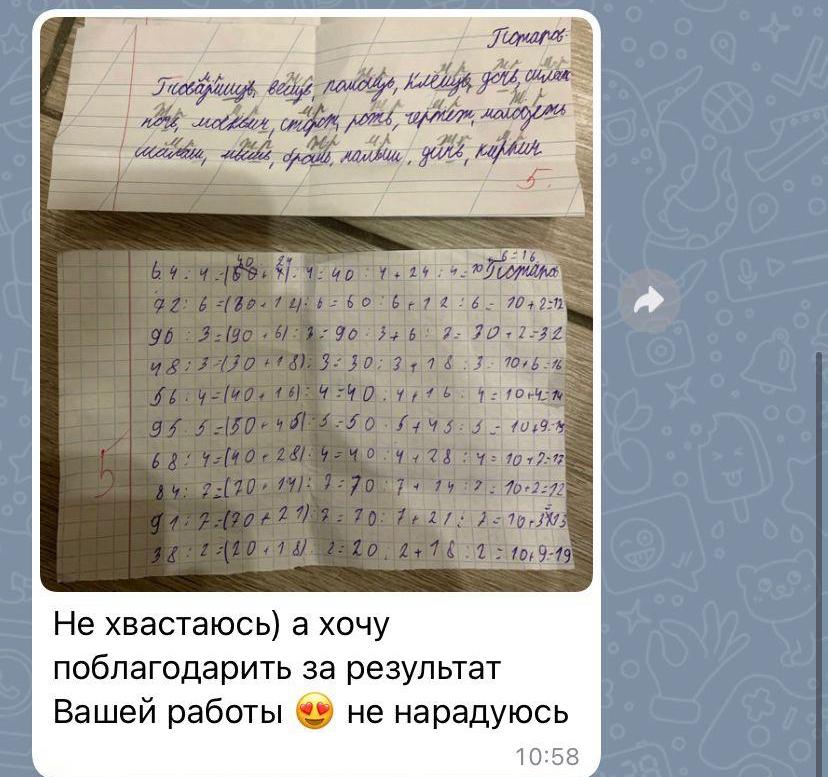 Потапов
Товарищ, вещь, помощь, клещ, дочь, шалаш
ночь, москвич, сторож, рожь, чертёж, молодёжь
шалаш, мышь, брошь, малыш, дичь, кирпич
5.
40 24 6=16
64:4=(60+4):4=40:4+24:4=10 Потапов
72:6=(60+12):6=60:6+12:6=10+2=12
96:3=(90+6):3=90:3+6:3=30+2=32
48:3=(30+18):3=30:3+18:3=10+6=16
56:4=(40+16):4=40:4+16:4=10+4=14
95:5=(50+45):5=50:5+45:5=10+9=19
68:4=(40+28):4=40:4+28:4=10+7=17
84:7=(70+14):7=70:7+14:7=10+2=12
91:7=(70+21):7=70:7+21:7=10+3=13
38:2=(20+18):2=20:2+18:2=10+9=19
5
Не хвастаюсь) а хочу
поблагодарить за результат
Вашей работы 😍 не нарадуюсь
10:58